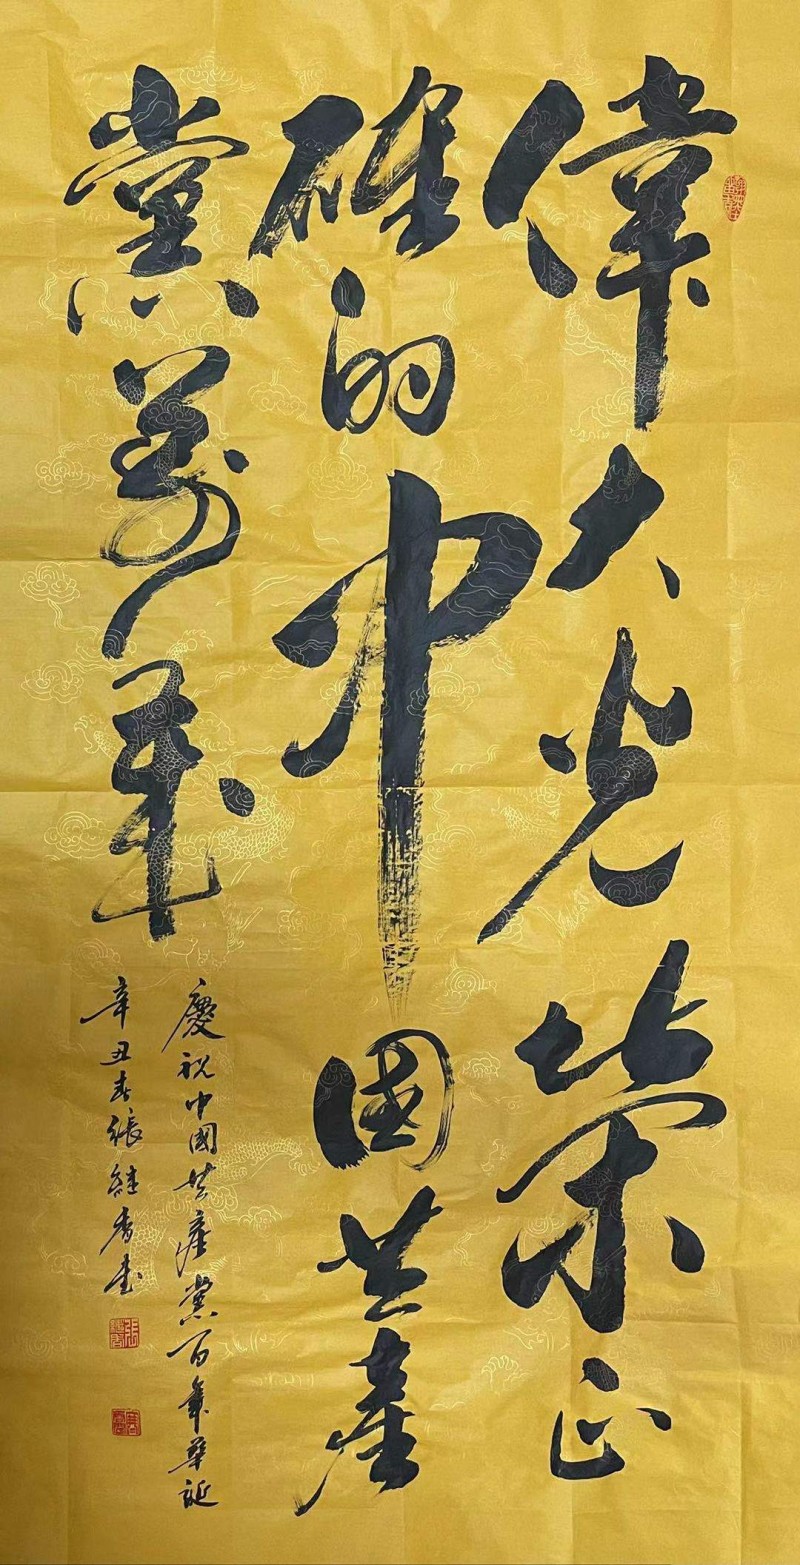 偉大光榮正
確的中國共產
黨萬歲
慶祝中國共產黨百年華誕
辛丑春張繼香書